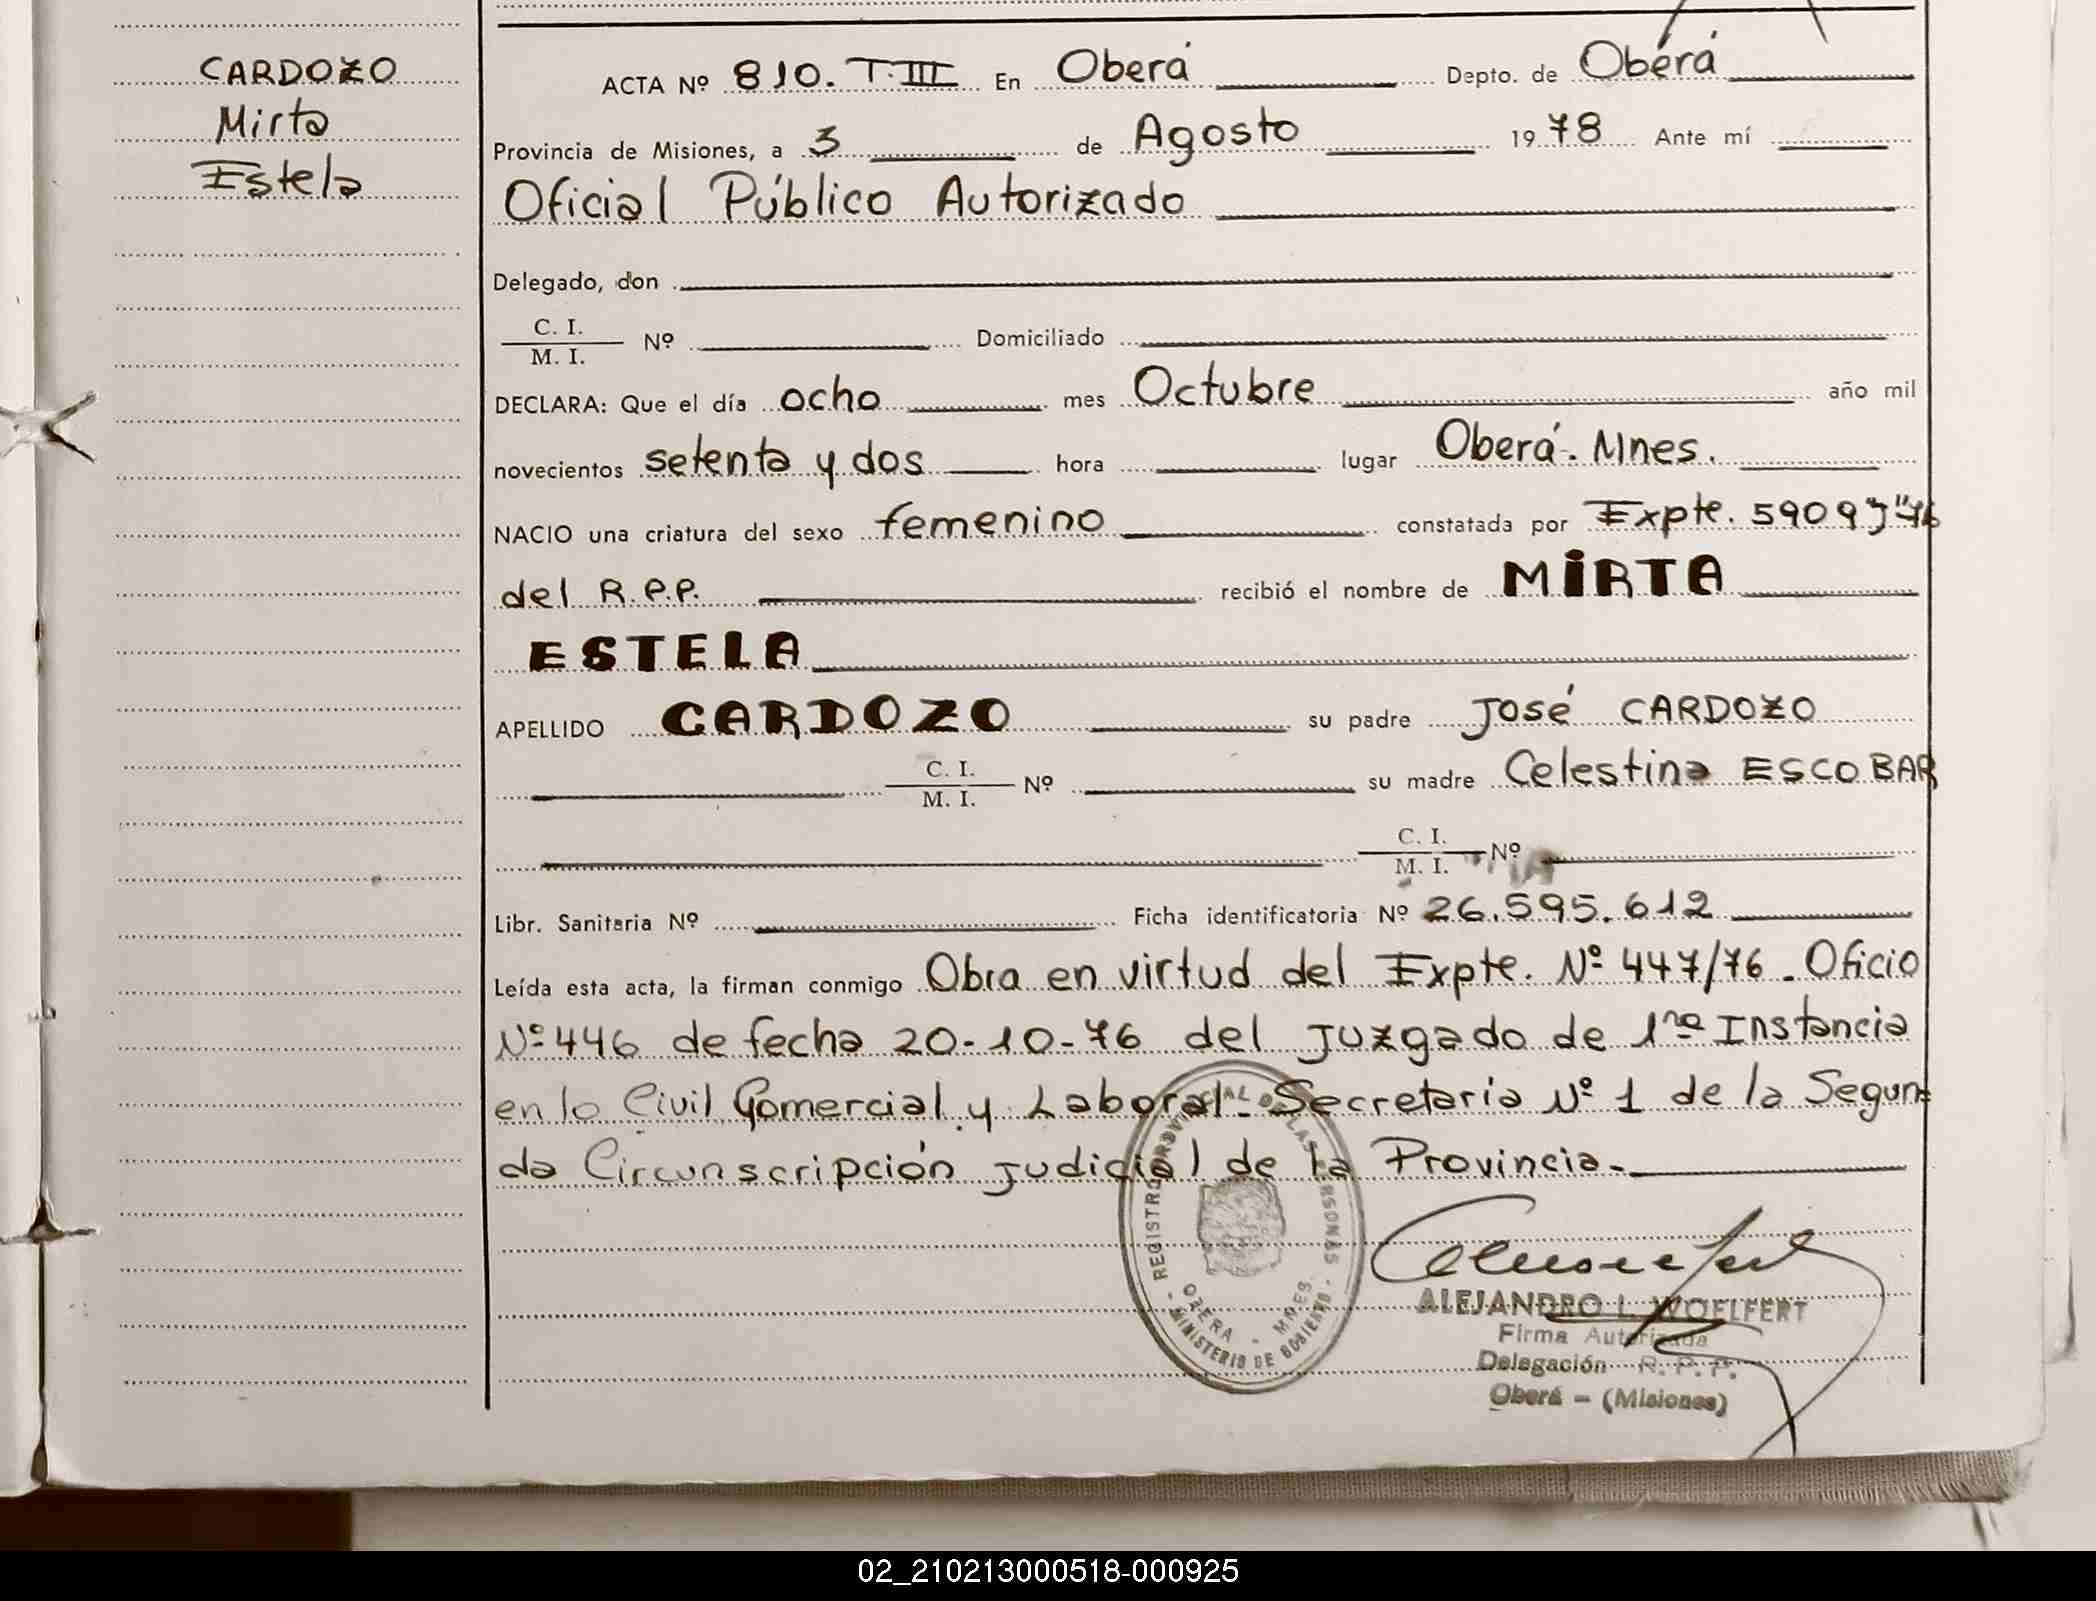 CARDOZO
Mirta
Estela
ACTA Nº 810. T. III En Oberá Depto. de Oberá
Provincia de Misiones, a 3 de Agosto 1978 Ante mí
Oficial Público Autorizado
Delegado, don
C. I.
M. I. Nº Domiciliado
DECLARA: Que el día ocho mes Octubre año mil
novecientos setenta y dos hora lugar Oberá. Mnes.
NACIO una criatura del sexo femenino constatada por Expte. 5909
del R.P.P. recibió el nombre de MIRTA
ESTELA
APELLIDO CARDOZO su padre José CARDOZO
C. I.
M. I. Nº su madre Celestina ESCOBAR
C. I.
M. I. Nº
Libr. Sanitaria Nº Ficha identificatoria Nº 26.595.612
Leída esta acta, la firman conmigo Obra en virtud del Expte. Nº 447/76. Oficio
Nº 446 de fecha 20-10-76 del Juzgado de 1ra Instancia
en lo Civil Comercial y Laboral. Secretaria Nº 1 de la Segun
da Circunscripción Judicial de la Provincia.
REGISTRO PROVINCIAL DE LAS PERSONAS
OBERA - MNES.
- MINISTERIO DE GOBIERNO -
ALEJANDRO L. WOELFERT
Firma Autorizada
Delegación R. P. P.
Oberá - (Misiones)
02_210213000518-000925